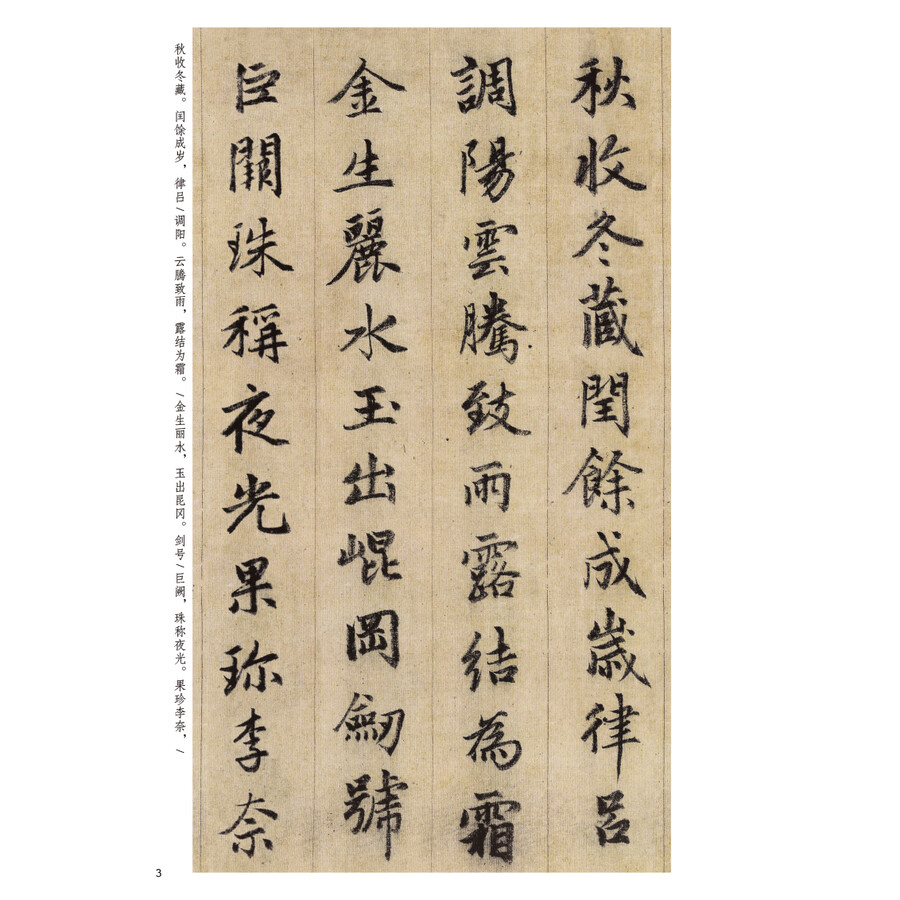 秋收冬藏閏餘成歲律呂
調陽雲騰致雨露結為霜
金生麗水玉出崐岡劒號
巨闕珠稱夜光果珎李柰
秋收冬藏。闰馀成岁，律吕/调阳。云腾致雨，露结为霜。/金生丽水，玉出昆冈。剑号/巨阙，珠称夜光。果珍李奈，/
3